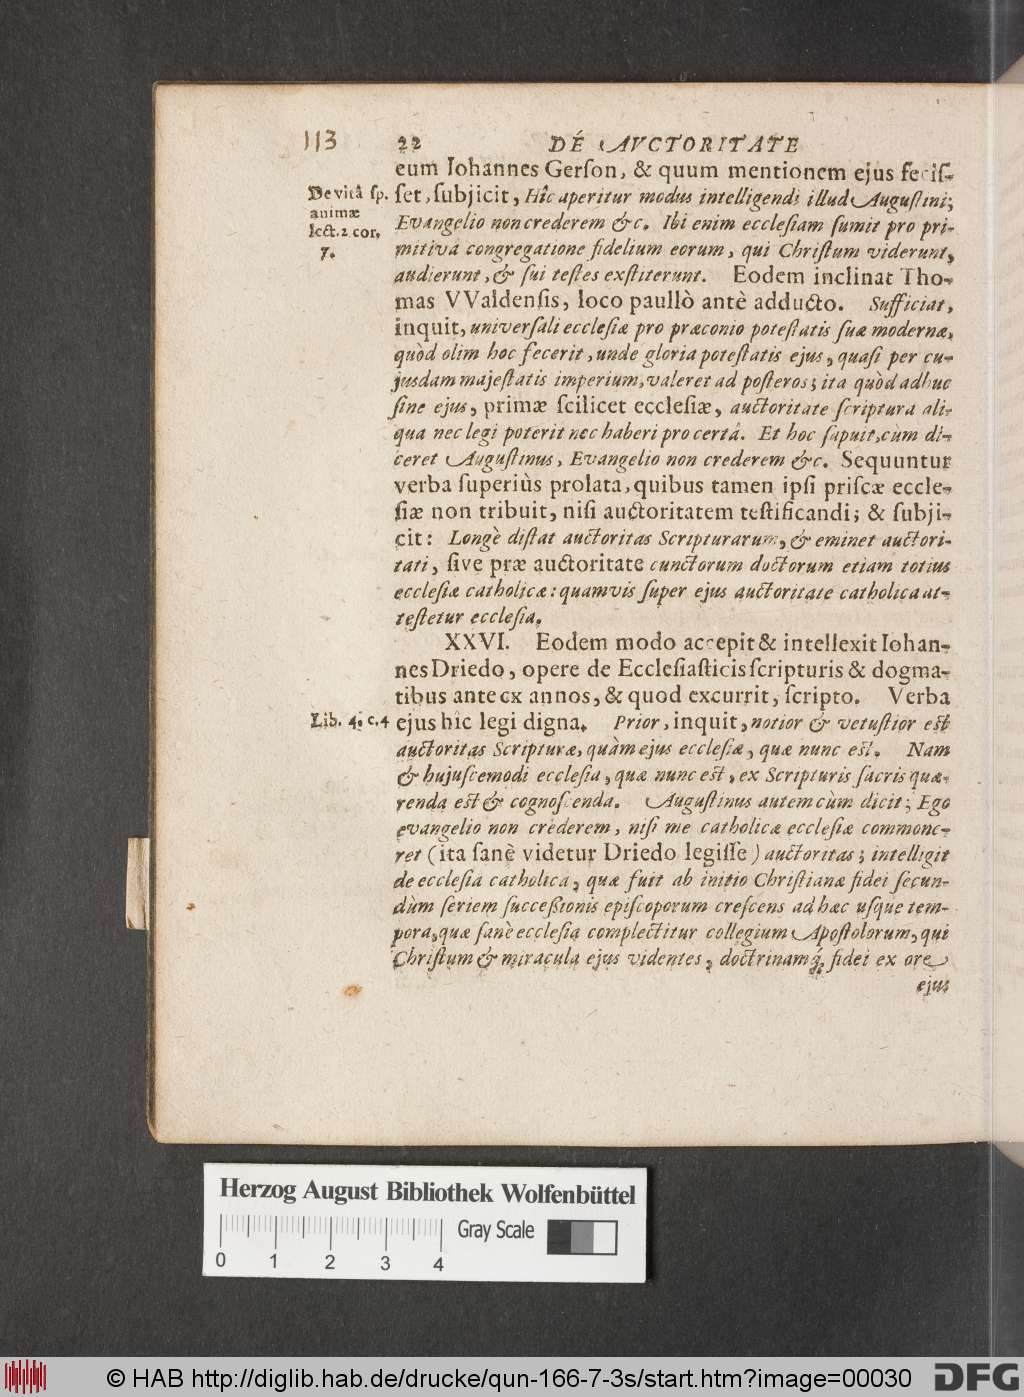 113
22 DÉ AVCTORITATE
eum Iohannes Gerſon, & quum mentionem ejus feciſ-
De vitâ ſp.
animæ
lect. 2 cor.
7.
ſet, ſubjicit, Hîc aperitur modus intelligendi illud Auguſtini;
Evangelio non crederem &c. Ibi enim eccleſiam ſumit pro pri-
mitivâ congregatione fidelium eorum, qui Chriſtum viderunt,
audierunt, & ſui teſtes exſtiterunt. Eodem inclinat Tho-
mas VValdenſis, loco paullò antè adducto. Sufficiat,
inquit, univerſali eccleſiæ pro præconio poteſtatis ſuæ modernæ,
quòd olim hoc fecerit, unde gloria poteſtatis ejus, quaſi per cu-
jusdam majeſtatis imperium, valeret ad poſteros; ita quòd adhuc
ſine ejus, primæ ſcilicet eccleſiæ, auctoritate ſcriptura ali-
qua nec legi poterit nec haberi pro certâ. Et hoc ſapuit, cùm di-
ceret Auguſtinus, Evangelio non crederem &c. Sequuntur
verba ſuperiùs prolata, quibus tamen ipſi priſcæ eccle-
ſiæ non tribuit, niſi auctoritatem teſtificandi; & ſubji-
cit: Longè diſtat auctoritas Scripturarum, & eminet auctori-
tati, ſive præ auctoritate cunctorum doctorum etiam totius
eccleſiæ catholicæ: quamvis ſuper ejus auctoritate catholica at-
teſtetur eccleſia.
XXVI. Eodem modo accepit & intellexit Iohan-
nes Driedo, opere de Eccleſiaſticis ſcripturis & dogma-
tibus ante cx annos, & quod excurrit, ſcripto. Verba
Lib. 4. c. 4
ejus hîc legi digna. Prior, inquit, notior & vetuſtior eſt
auctoritas Scripturæ, quàm ejus eccleſiæ, quæ nunc eſt. Nam
& hujuſcemodi eccleſia, quæ nunc eſt, ex Scripturis ſacris quæ-
renda eſt & cognoſcenda. Auguſtinus autem cùm dicit; Ego
evangelio non crederem, niſi me catholicæ eccleſiæ commone-
ret (ita ſanè videtur Driedo legiſſe) auctoritas; intelligit
de eccleſia catholica, quæ fuit ab initio Chriſtianæ fidei ſecun-
dùm ſeriem ſucceßionis epiſcoporum creſcens ad hæc uſque tem-
pora, quæ ſanè eccleſia complectitur collegium Apoſtolorum, qui
Chriſtum & miracula ejus videntes, doctrinamq́; fidei ex ore
ejus
Herzog August Bibliothek Wolfenbüttel
Gray Scale
0 1 2 3 4
© HAB http://diglib.hab.de/drucke/qun-166-7-3s/start.htm?image=00030
DFG